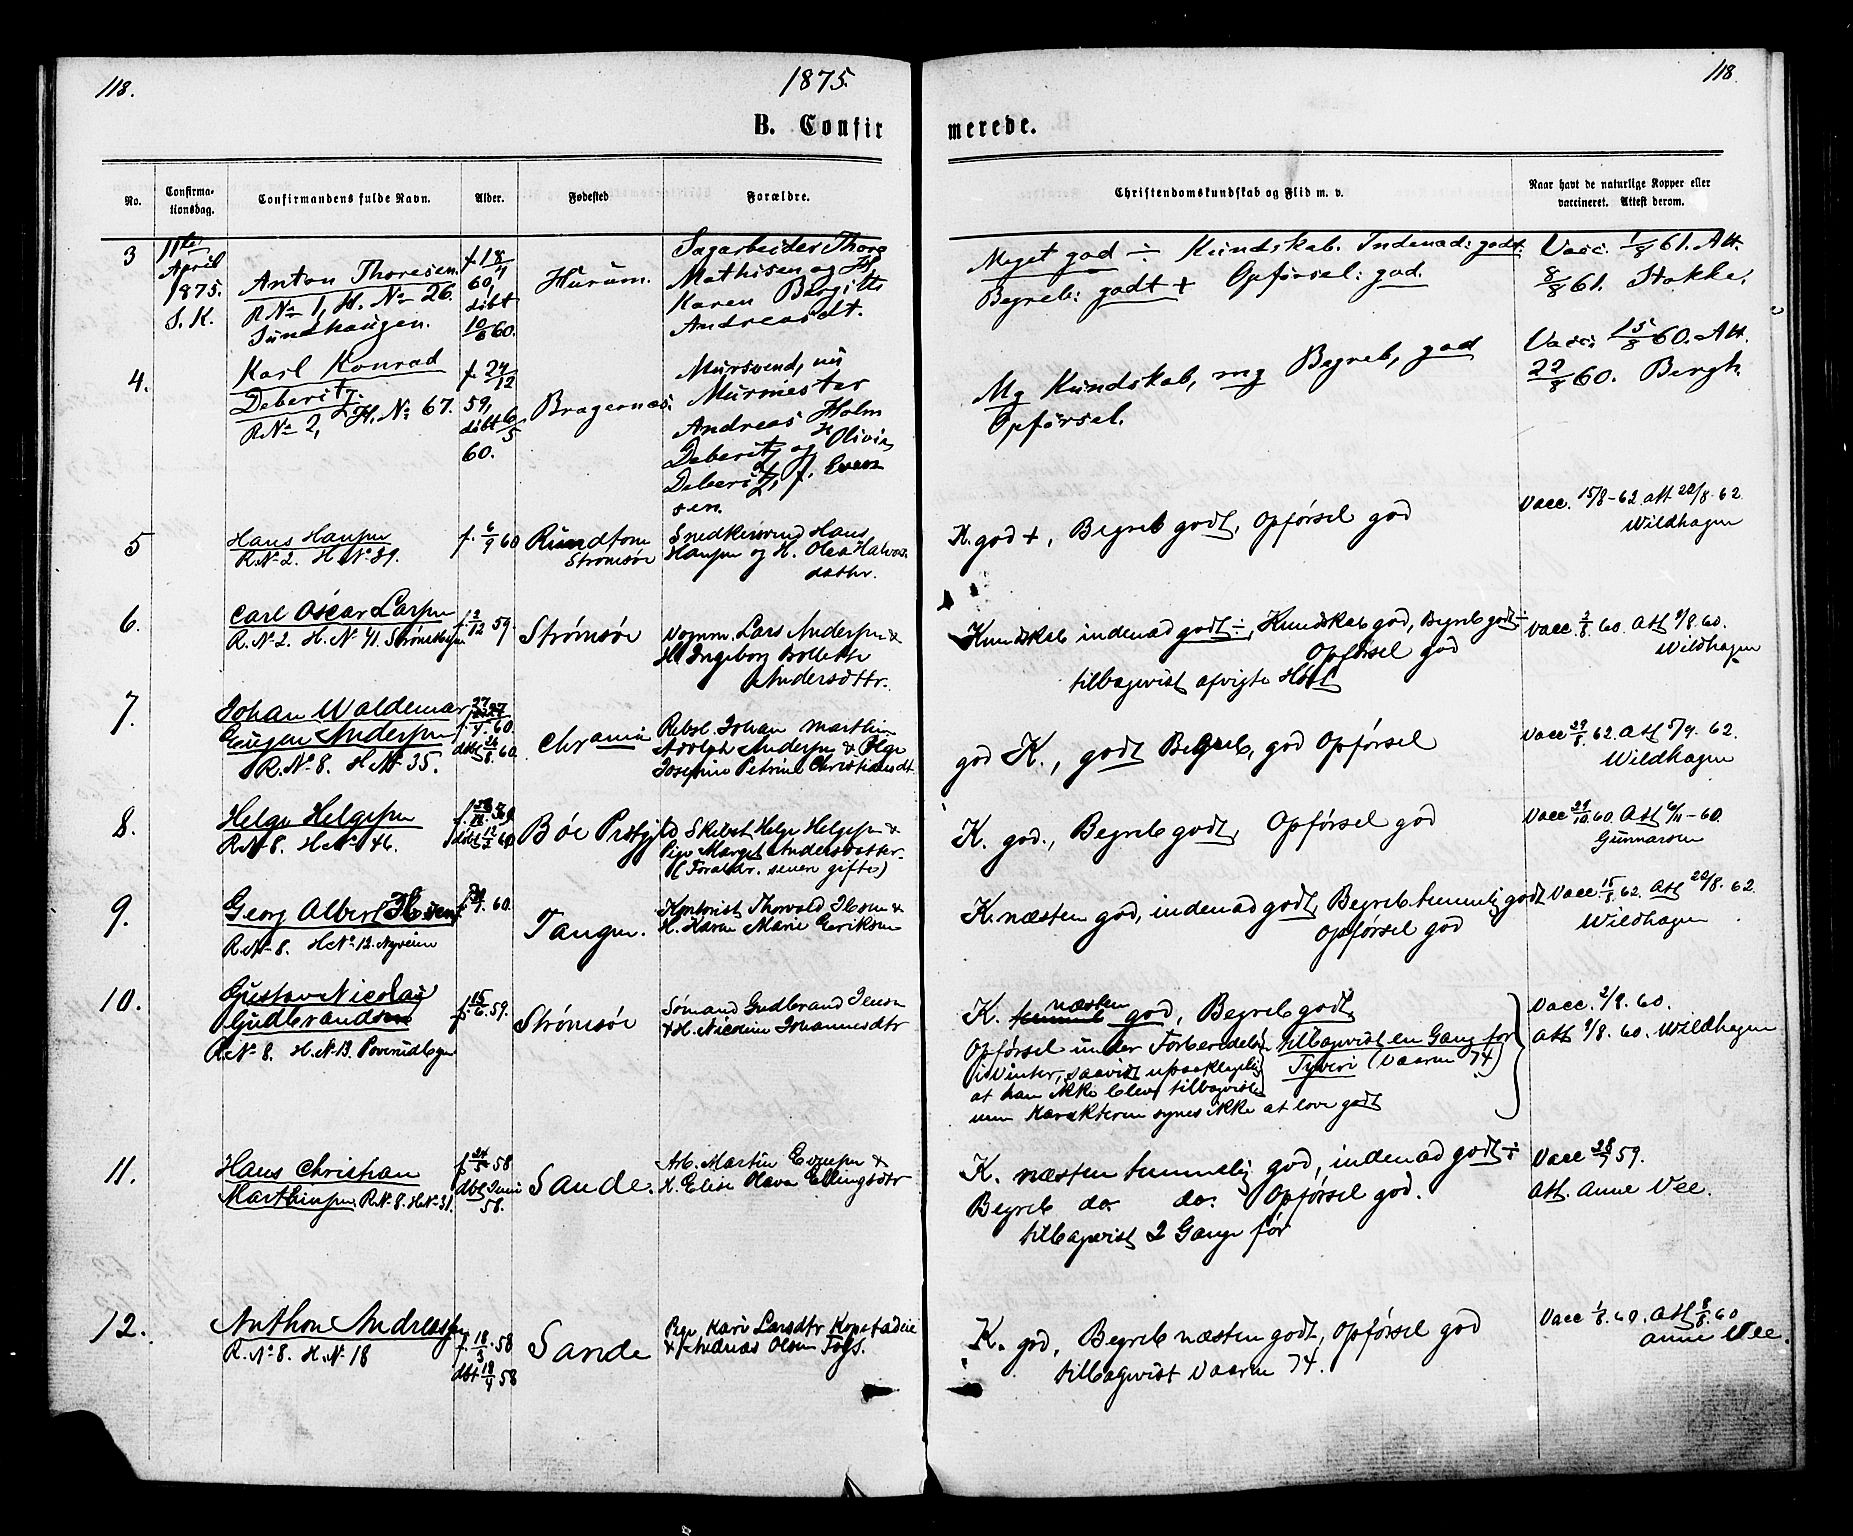 118.
1875.
118.
B. Confir
merede.
No.
Confirma-
tionsdag.
Confirmandens fulde Navn.
Alder.
Fødested
Forældre.
Christendomskundskab og Flid m. v.
Naar havt de naturlige Kopper eller
vaccineret. Attest derom.
3
11te
April
1875.
S. K.
Anton Thoresen.
R No 1, H. No 26.
Sundhaugen.
f. 18/4
60,
döbt
10/6 60.
Hurum.
Sagarbeider Thore
Mathisen og H.
Karen Birgitte
Andreasdt.
Meget god ÷ Kundskab. Indenad: godt.
Begreb: godt + Opførsel: god.
Vacc. 1/8 61. Att.
8/8 61. Stokke.
4.
Karl Konrad
Deberitz.
R No 2, H. No 67.
f. 24/12
59,
döbt 6/5
60.
Bragernes.
Mursvend, nu
Murmester
Andreas Holm
Deberitz og H. Olivia
Deberitz, f. Even
sen.
Mg Kundskab, mg Begreb, god
Opførsel.
Vacc. 15/8 60. Att.
22/8 60. Bergh.
5
Hans Hansen
R. No 2. H No 39.
f. 6/9 60
Rundtom
Strømsöe
Snedkersvend Hans
Hansen og H. Olea Halvors
datter.
K. god +, Begreb godt, Opførsel god
Vacc. 15/8-62. att 22/8. 62
Wildhagen
6.
Carl Oscar Larsen
R. No 2. H. No 41.
f. 2/12 59.
Strömsöe
Vognm. Lars Andersen &
H. Ingeborg Bollette
Andersdttr.
Kundskab indenad godt÷, Kundskab god, Begreb godt÷
Opførsel god
tilbagevist afvigte Höst
Vacc. 2/8. 60. Att 9/8. 60.
Wildhagen
7.
Johan Waldemar
Eugen Andersen
R. No 8. H No 35.
Chrania
Rebsl. Johan Marthin
Adolph Andersen & Pige
Josephine Petrine Christiansdt.
god K., godt Begreb, god Opførsel
Vacc 29/8. 62. Att 5/9. 62.
Wildhagen
8.
Helge Helgesen
R. No 8. H No 46.
Böe Prstgjld
Skibst. Helge Helgesen &
Pige Marget Andersdatter.
(Forældr. senere gifte)
K. god., Begreb godt, Opførsel god
Vacc 29/10 60. Att 6/11-60.
Gunnarsen
9.
Georg Albert Ibsen
R. No 8. H No 12. Nyveien
Tangen.
Kontorist Thorvald Ibsen &
H. Karen Marie Eriksen
K. næsten god, indenad godt, Begreb temmelig godt
Opførsel god
Vacc 15/8. 62. Att 22/8. 62.
Wildhagen
10.
Gustav Nicolai
Gudbrandsen
R. No 8. H. No 13.
f. 15/6. 59.
Strömsöe
Sömand Gudbrand Jensen
& H. Nicoline Johannesdtr
K. temmel næsten god, Begreb godt,
Opførsel under Forberedelsen
i Vinter, saavidt upaaklagelig
at han ikke blev tilbagevist
men Karakteren synes ikke at love godt
tilbagevist en Gang for
Tyveri (Vaaren 74)
Vacc. 2/8. 60.
Att 9/8. 60. Wildhagen
11.
Hans Christian
Marthinsen. R. No 8. H No 31.
f. 24/5 58
döbt Juni
58.
Sande.
Arb. Martin Evensen &
H. Elise Olava Ellingsdtr
K. næsten temmelig god, indenad godt÷
Begreb do do. Opførsel god.
tilbagevist 2 Gange før
Vacc 28/7 59.
Att. Anne Vee.
12.
Anthon Andreassen
R. No 8. H. No 18
f. 18/3. 58
döbt 18/4 58
Sande
Pige Kari Larsdtr Kopstadeie
& Andreas Olsen
K. god, Begreb næsten godt, Opførsel god
tilbagevist Vaaren 74.
Vacc 1/8. 60. Att 8/8. 60
Anne Vee.